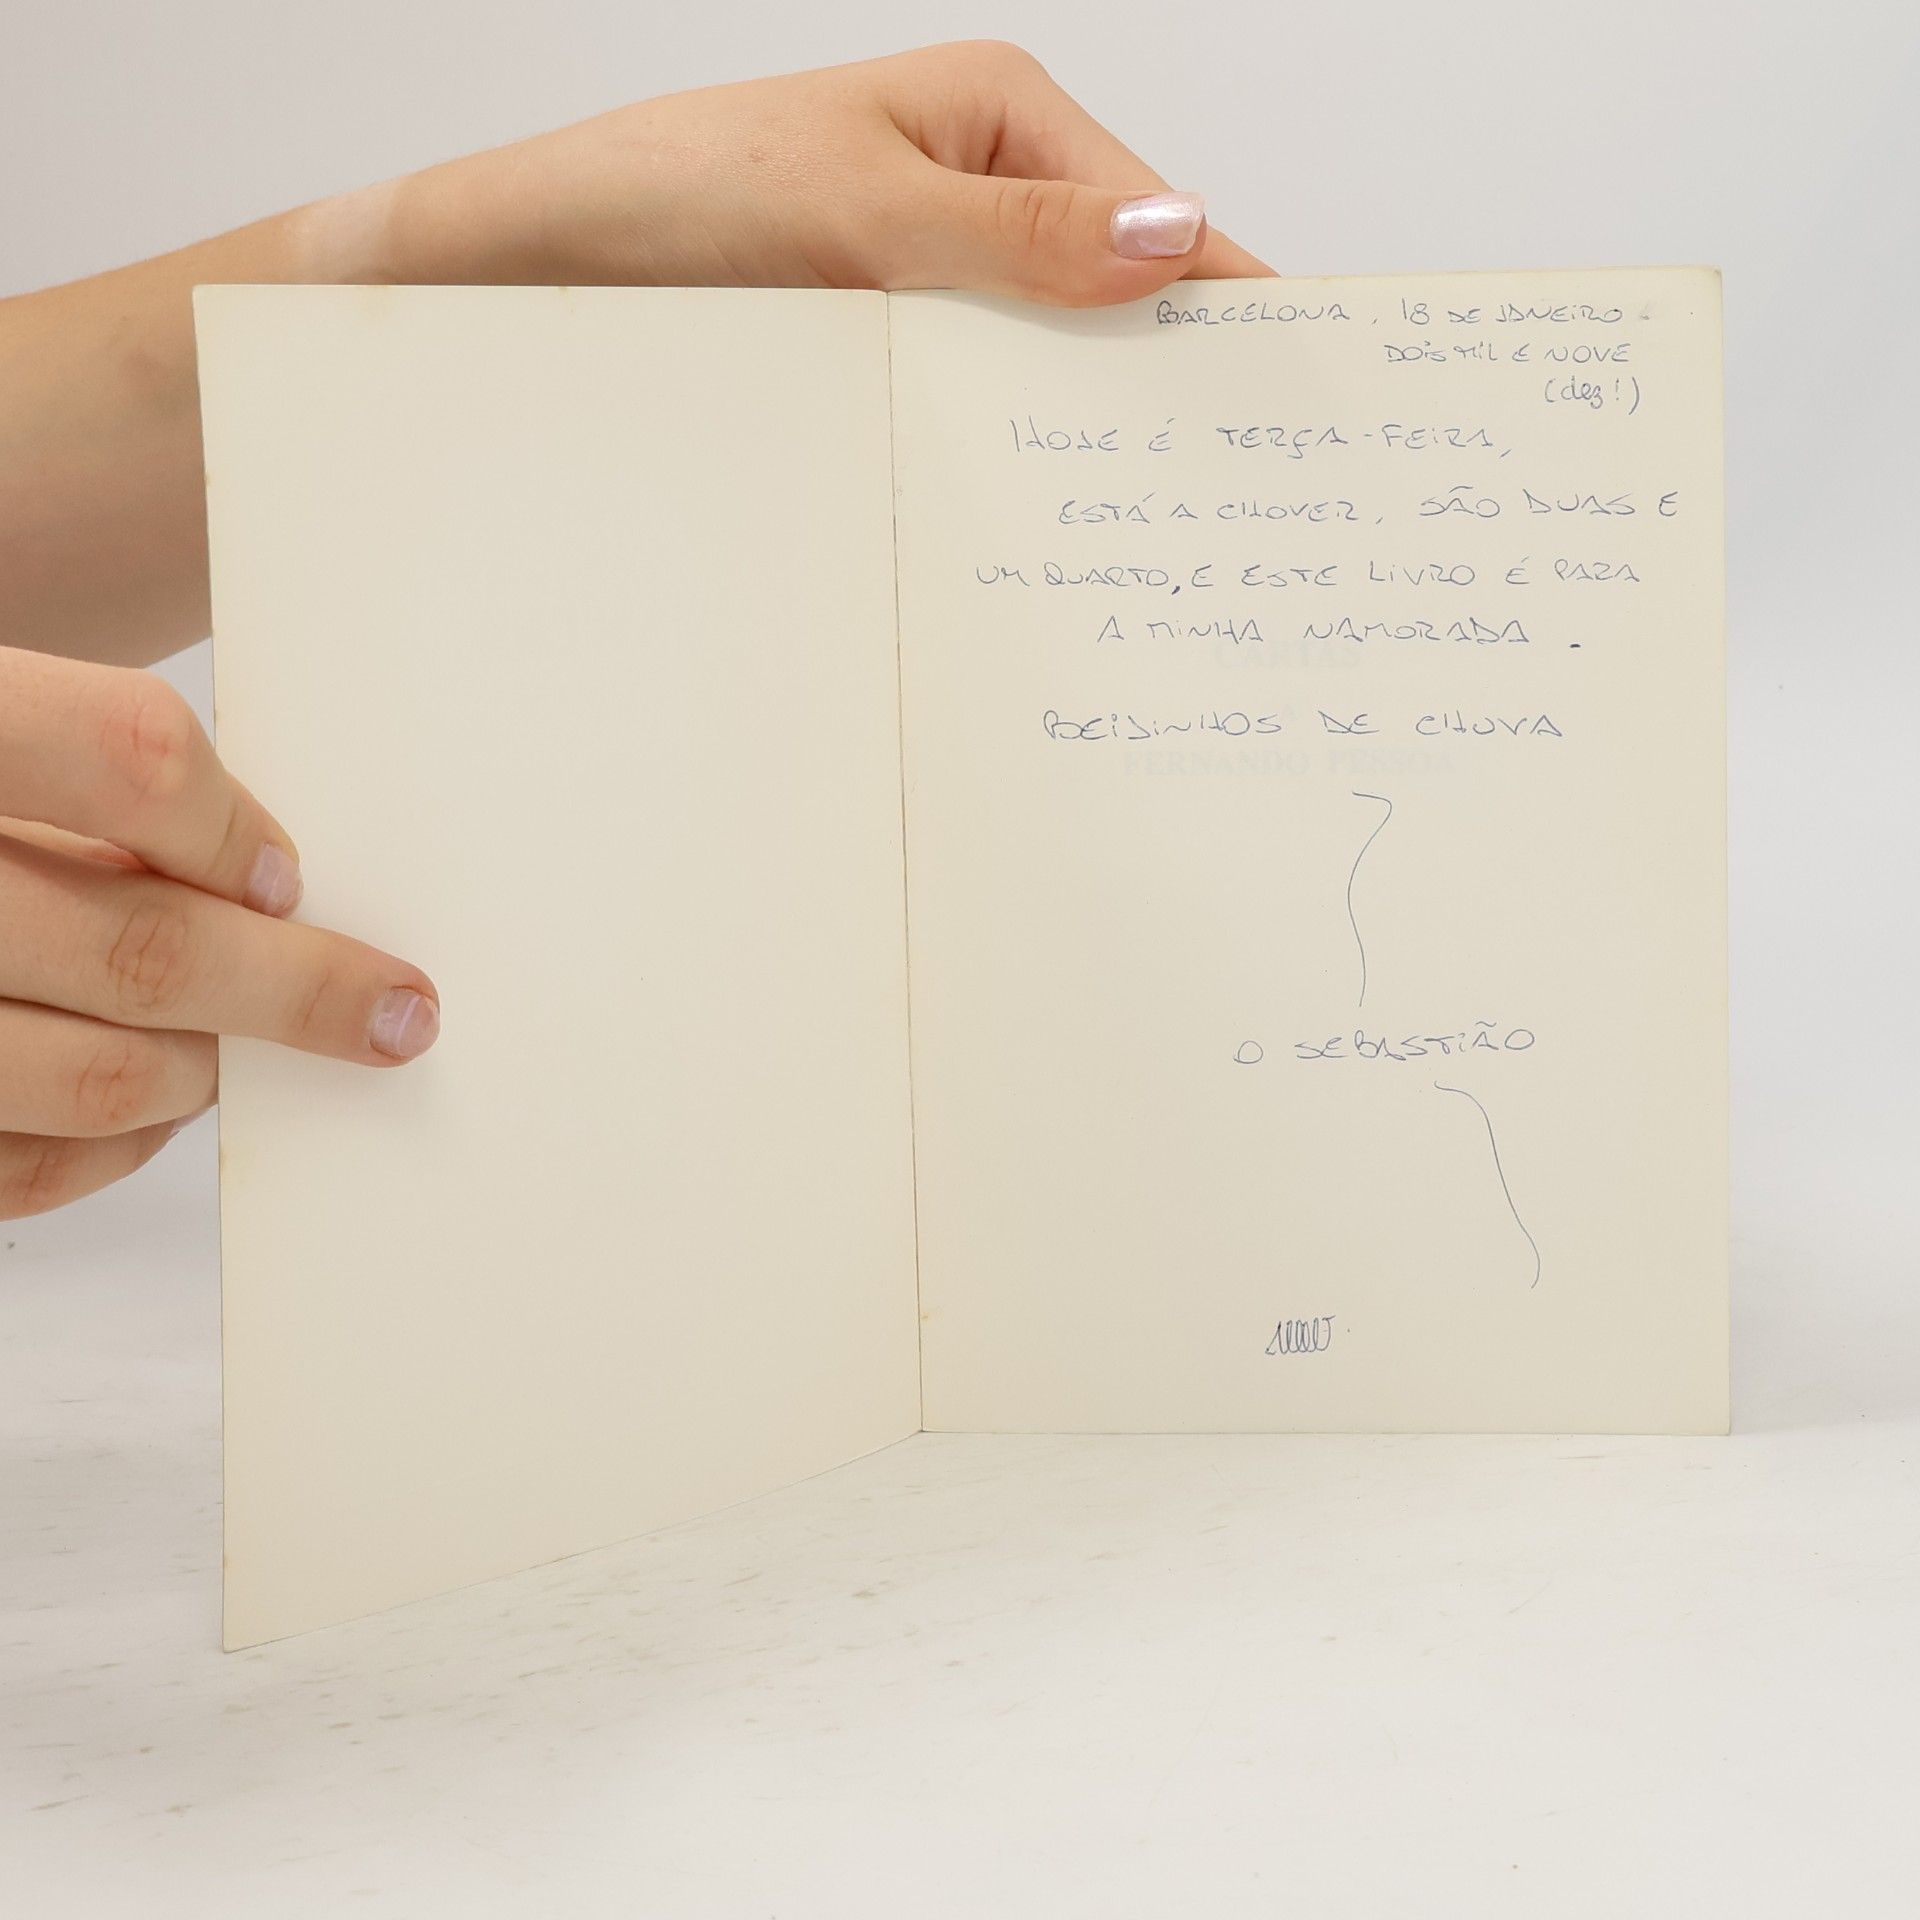 BARCELONA, 18 DE JANEIRO
DOIS MIL E NOVE
(dez!)
HOJE É TERÇA-FEIRA,
ESTÁ A CHOVER, SÃO DUAS E
UM QUARTO, E ESTE LIVRO É PARA
A MINHA NAMORADA.
CARTAS
BEIJINHOS DE CHUVA
FERNANDO PESSOA
O SEBASTIÃO